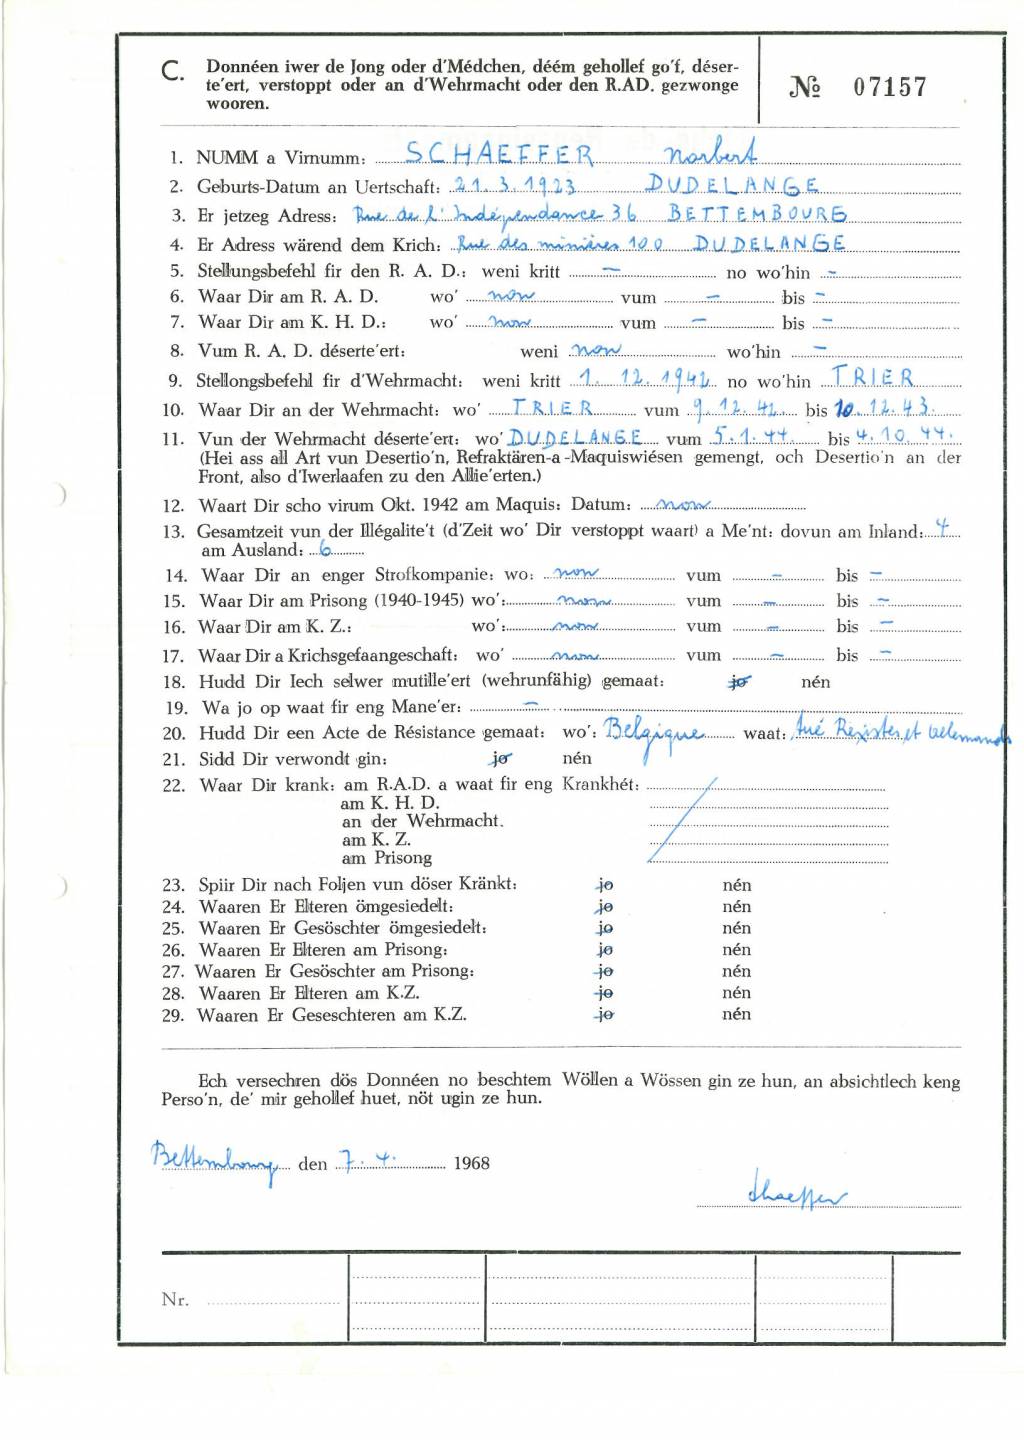 C. Donnéen iwer de Jong oder d'Médchen, déém gehollef go'f, déser-
te'ert, verstoppt oder an d'Wehrmacht oder den R.AD. gezwonge
wooren.
№ 07157
1. NUMM a Virnumm: SCHAEFFER Norbert
2. Geburts-Datum an Uertschaft: 21.3.1923 DUDELANGE
3. Er jetzeg Adress: Rue de l'Indépendance 36 BETTEMBOURG
4. Er Adress wärend dem Krich: Rue des minières 100 DUDELANGE
5. Stellungsbefehl fir den R. A. D.: weni kritt – no wo'hin –
6. Waar Dir am R. A. D. wo' non vum – bis –
7. Waar Dir am K. H. D.: wo' non vum – bis –
8. Vum R. A. D. déserte'ert: weni non wo'hin –
9. Stellongsbefehl fir d'Wehrmacht: weni kritt 1. 12. 1942 no wo'hin TRIER
10. Waar Dir an der Wehrmacht: wo' TRIER vum 9.12.42 bis 10.12.43.
11. Vun der Wehrmacht déserte'ert: wo' DUDELANGE vum 5.1.44. bis 4.10.44.
(Hei ass all Art vun Desertio'n, Refraktären-a-Maquiswiésen gemengt, och Desertio'n an der
Front, also d'Iwerlaafen zu den Allie'erten.)
12. Waart Dir scho virum Okt. 1942 am Maquis: Datum: non
13. Gesamtzeit vun der Illégalite't (d'Zeit wo' Dir verstoppt waart) a Me'nt: dovun am Inland: 4
am Ausland: 6
14. Waar Dir an enger Strofkompanie: wo: non vum – bis –
15. Waar Dir am Prisong (1940-1945) wo': non vum – bis –
16. Waar Dir am K. Z.: wo': non vum – bis –
17. Waar Dir a Krichsgefaangeschaft: wo' non vum – bis –
18. Hudd Dir Iech selwer mutille'ert (wehrunfähig) gemaat: jo nén
19. Wa jo op waat fir eng Mane'er: –
20. Hudd Dir een Acte de Résistance gemaat: wo': Belgique waat: tué Rexistes et allemands
21. Sidd Dir verwondt gin: jo nén
22. Waar Dir krank: am R.A.D. a waat fir eng Krankhét:
am K. H. D.
an der Wehrmacht.
am K. Z.
am Prisong
23. Spiir Dir nach Foljen vun döser Kränkt: jo nén
24. Waaren Er Elteren ömgesiedelt: jo nén
25. Waaren Er Gesöschter ömgesiedelt: jo nén
26. Waaren Er Elteren am Prisong: jo nén
27. Waaren Er Gesöschter am Prisong: jo nén
28. Waaren Er Elteren am K.Z. jo nén
29. Waaren Er Geseschteren am K.Z. jo nén
Ech versechren dös Donnéen no beschtem Wöllen a Wössen gin ze hun, an absichtlech keng
Perso'n, de' mir gehollef huet, nöt ugin ze hun.
Bettembourg den 7. 4. 1968
Schaeffer
Nr.